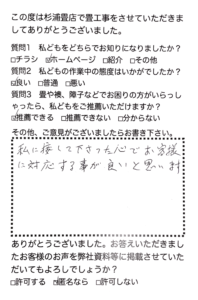 この度は杉浦畳店で畳工事をさせていただきまし
てありがとうございました。
質問1 私どもをどちらでお知りになりましたか?
□チラシ ☑ホームページ □紹介 □その他
質問2 私どもの作業中の態度はいかがでしたか?
☑良い □普通 □悪い
質問3 畳や襖、障子などでお困りの方がいらっし
ゃったら、私どもをご推薦いただけますか?
☑推薦できる □推薦できない □分からない
その他、ご意見がございましたらお書き下さい。
私に接して下さった心でお客様
に対応する事が良いと思います
ありがとうございました。お答えいただきまし
たお客様のお声を弊社資料等に掲載させていた
だいてもよろしでしょうか?
□許可する ☑匿名なら □許可しない